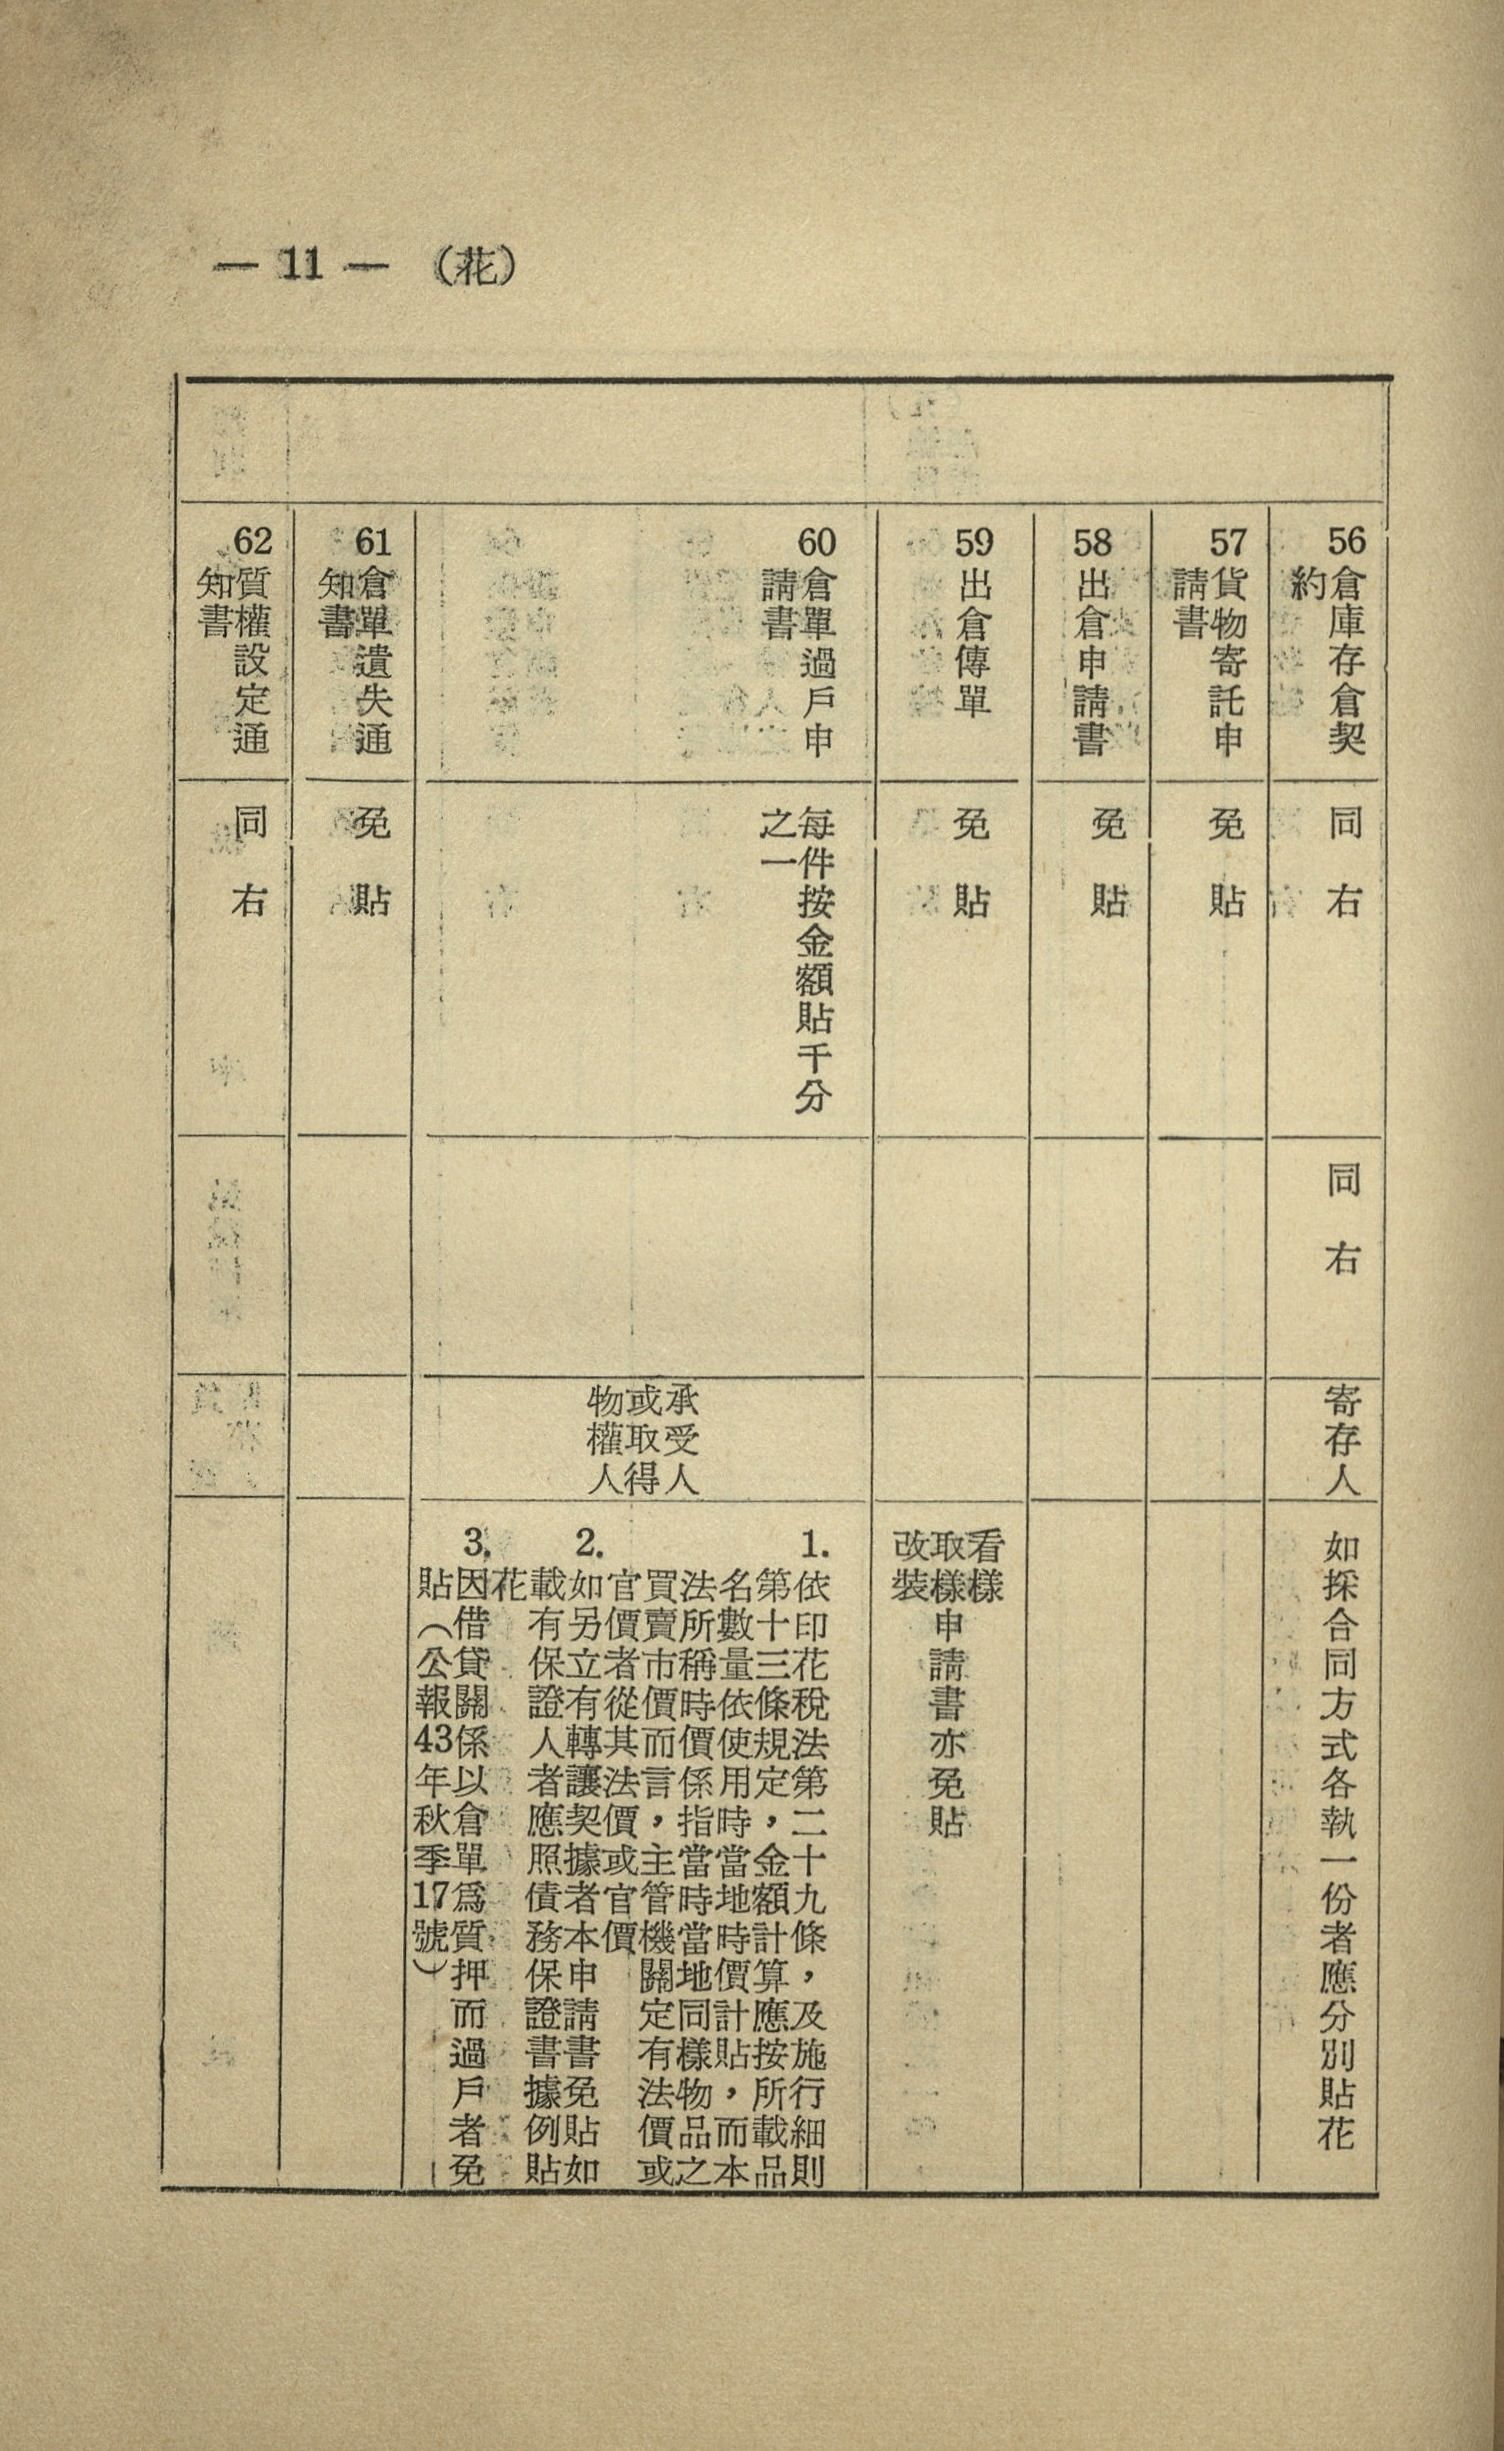 — 11 — （花）
56
倉庫存倉契
約
同右
同右
寄存人
如採合同方式各執一份者應分別貼花
57
貨物寄託申
請書
免貼
58
出倉申請書
免貼
59
出倉傳單
免貼
看樣
取樣申請書亦免貼
改裝
60
倉單過戶申
請書
每件按金額貼千分
之一
承受人
或取得
物權人
1.
依印花稅法第二十九條，及施行細則
第十三條規定，金額計算應按所載品
名數量依使用時當地時價計貼，而本
法所稱時價係指當時當地同樣物品之
買賣市價而言，主管機關定有法價或
官價者從其法價或官價
2.
如另立有轉讓契據者本申請書免貼如
載有保證人者應照債務保證書據例貼
花
3.
因借貸關係以倉單爲質押而過戶者免
貼（公報43年秋季17號）
61
倉單遺失通
知書
免貼
62
質權設定通
知書
同右